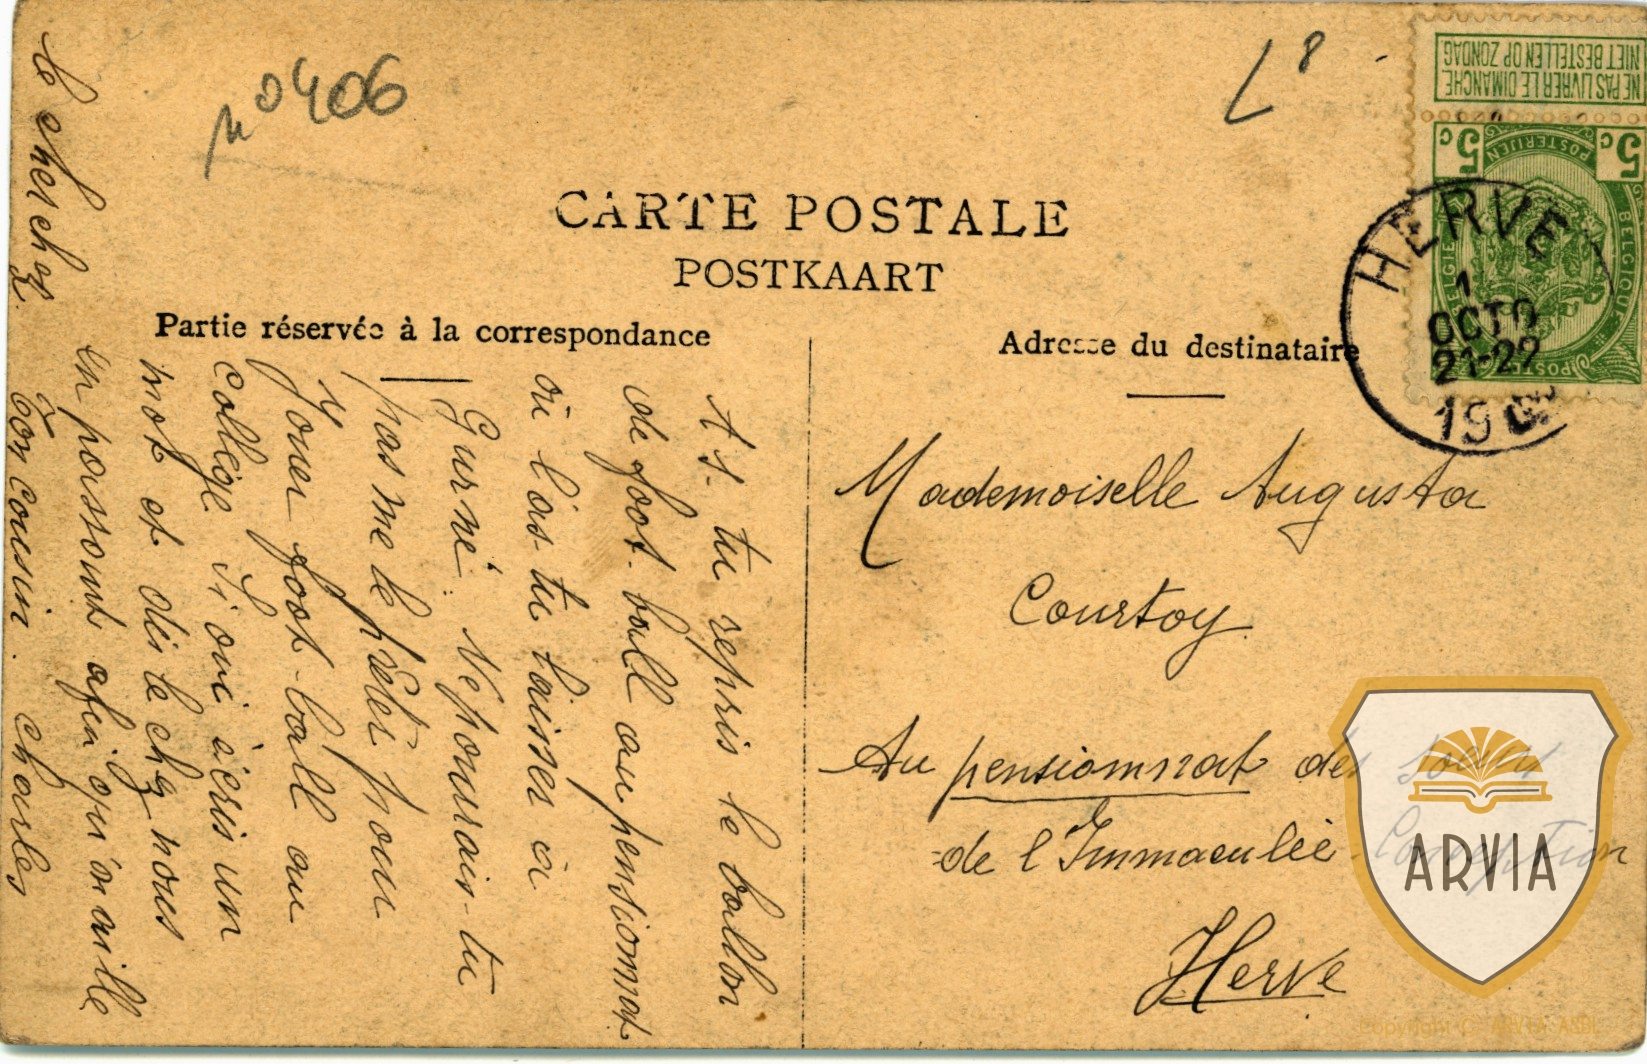 nº 406
L 8
NE PAS LIVRER LE DIMANCHE
NIET BESTELLEN OP ZONDAG
5c 5c
POSTERIJEN
BELGIE BELGIQUE
POSTES
HERVE
1
OCTO
21-22
19
CARTE POSTALE
POSTKAART
Partie réservée à la correspondance
Adresse du destinataire
As-tu repris le ballon
de foot-ball au pensionnat
où l'as-tu laissé à
Gurné. Ne pourrais-tu
pas me le prêter pour
jouer foot-ball au
collège. Si oui écris un
mot et dis le chez nous
en passant afin qu'on aille
le cherchez.
Ton cousin. Charles
Mademoiselle Augusta
Courtoy
Au pensionnat des soeurs
de l'Immaculée Conception
Herve
ARVIA
Copyright © ARVIA ASBL